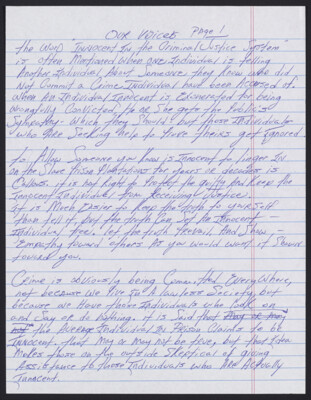 Our Voices Page 1
The Word "Innocent In The Criminal Justice System"
is often Mentioned when one Individual is telling
Another Individual About Someone they know who did
Not Commit a Crime Individual have been Accused of.
When An Individual Innocent is Exonerated for being
wrongfully Convicted, he or She gets the Publics
Sympathy. Which they Should, but those Individuals
who Are Seeking help to Prove theirs get Ignored

to Allow Someone you Know is Innocent to linger In
on the Slave Prison Plantations for years or decades is
Callous. it is not Right to Protect the guilty and Keep the
Innocent Individual from Receiving Justice.
it is Much Easier to Keep the truth to yourself
than tell it, but the truth Can Set the Innocent
Individual free. let the truth Prevail And Show
Empathy toward others As you would want it Shown
toward you.

Crime is obviously being Committed Everywhere,
not because we live In a lawless Society but
because we have those Individuals who look on
and Say or do Nothing. it is Said that
the Average Individual In Prison Claims to be
Innocent. that May or May not be true, but that
Makes those on the outside Skeptical of giving
Assistance to those Individuals who Are Actually
Innocent.